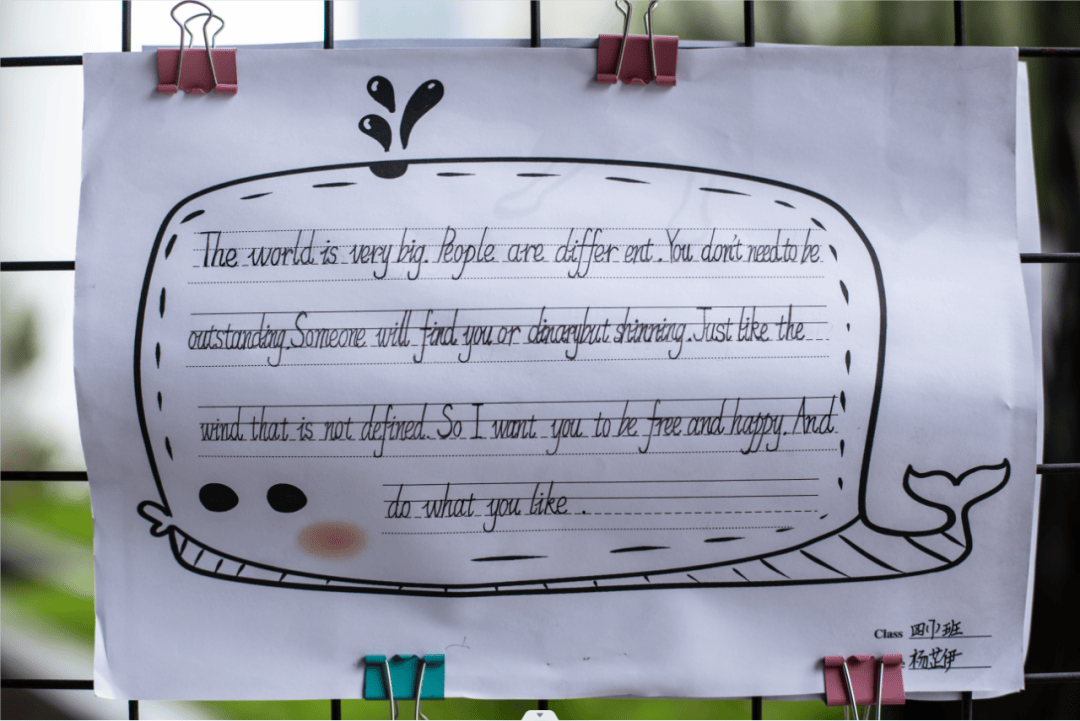 The world is very big. People are differ ent. You don't need to be
outstanding. Someone will find you or dinary but shinning. Just like the
wind that is not defined. So I want you to be free and happy. And
do what you like.
Class 四(1)班
杨芷伊